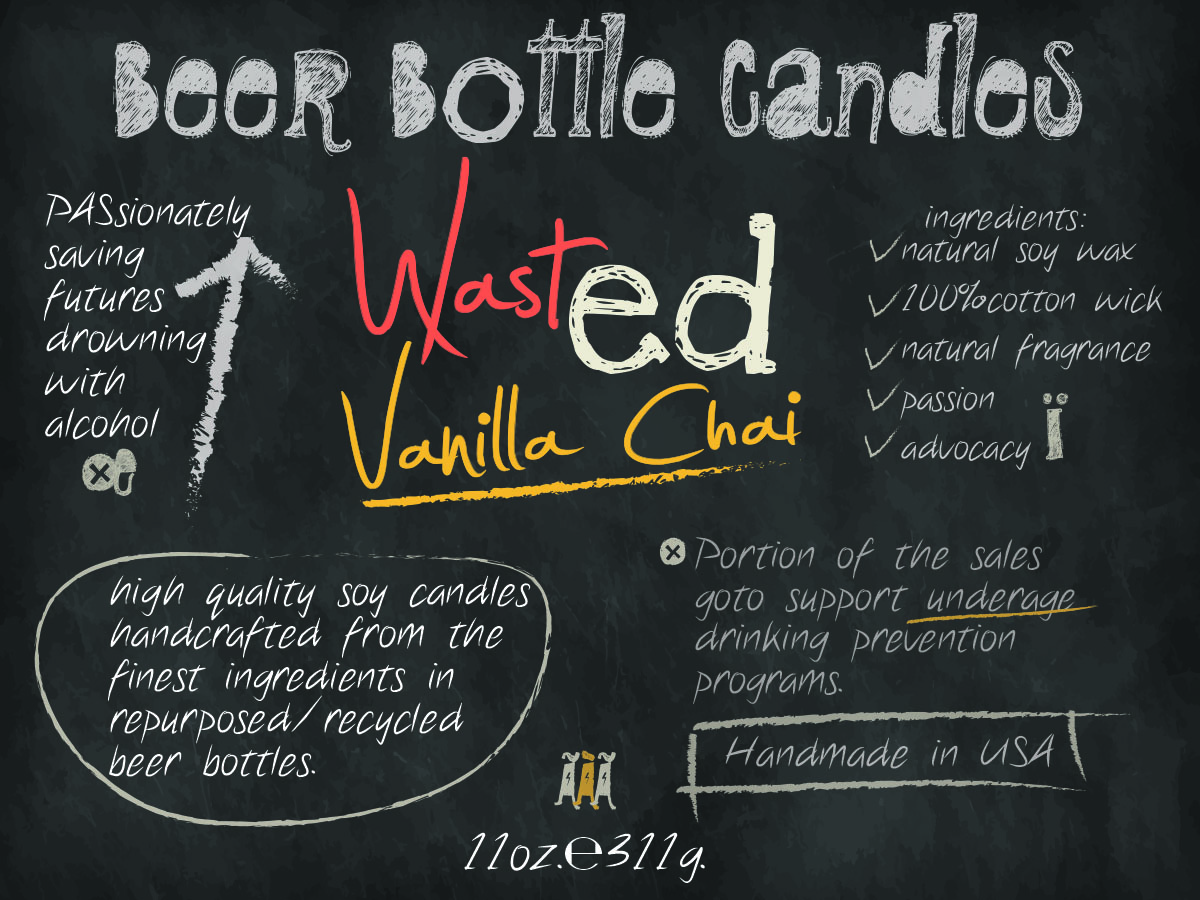 Beer Bottle Candles
PASsionately
saving
futures
drowning
with
alcohol
Wasted
Vanilla Chai
ingredients:
natural soy wax
100% cotton wick
natural fragrance
passion
advocacy
high quality soy candles
handcrafted from the
finest ingredients in
repurposed/recycled
beer bottles.
Portion of the sales
goto support underage
drinking prevention
programs.
Handmade in USA
11oz.℮311g.